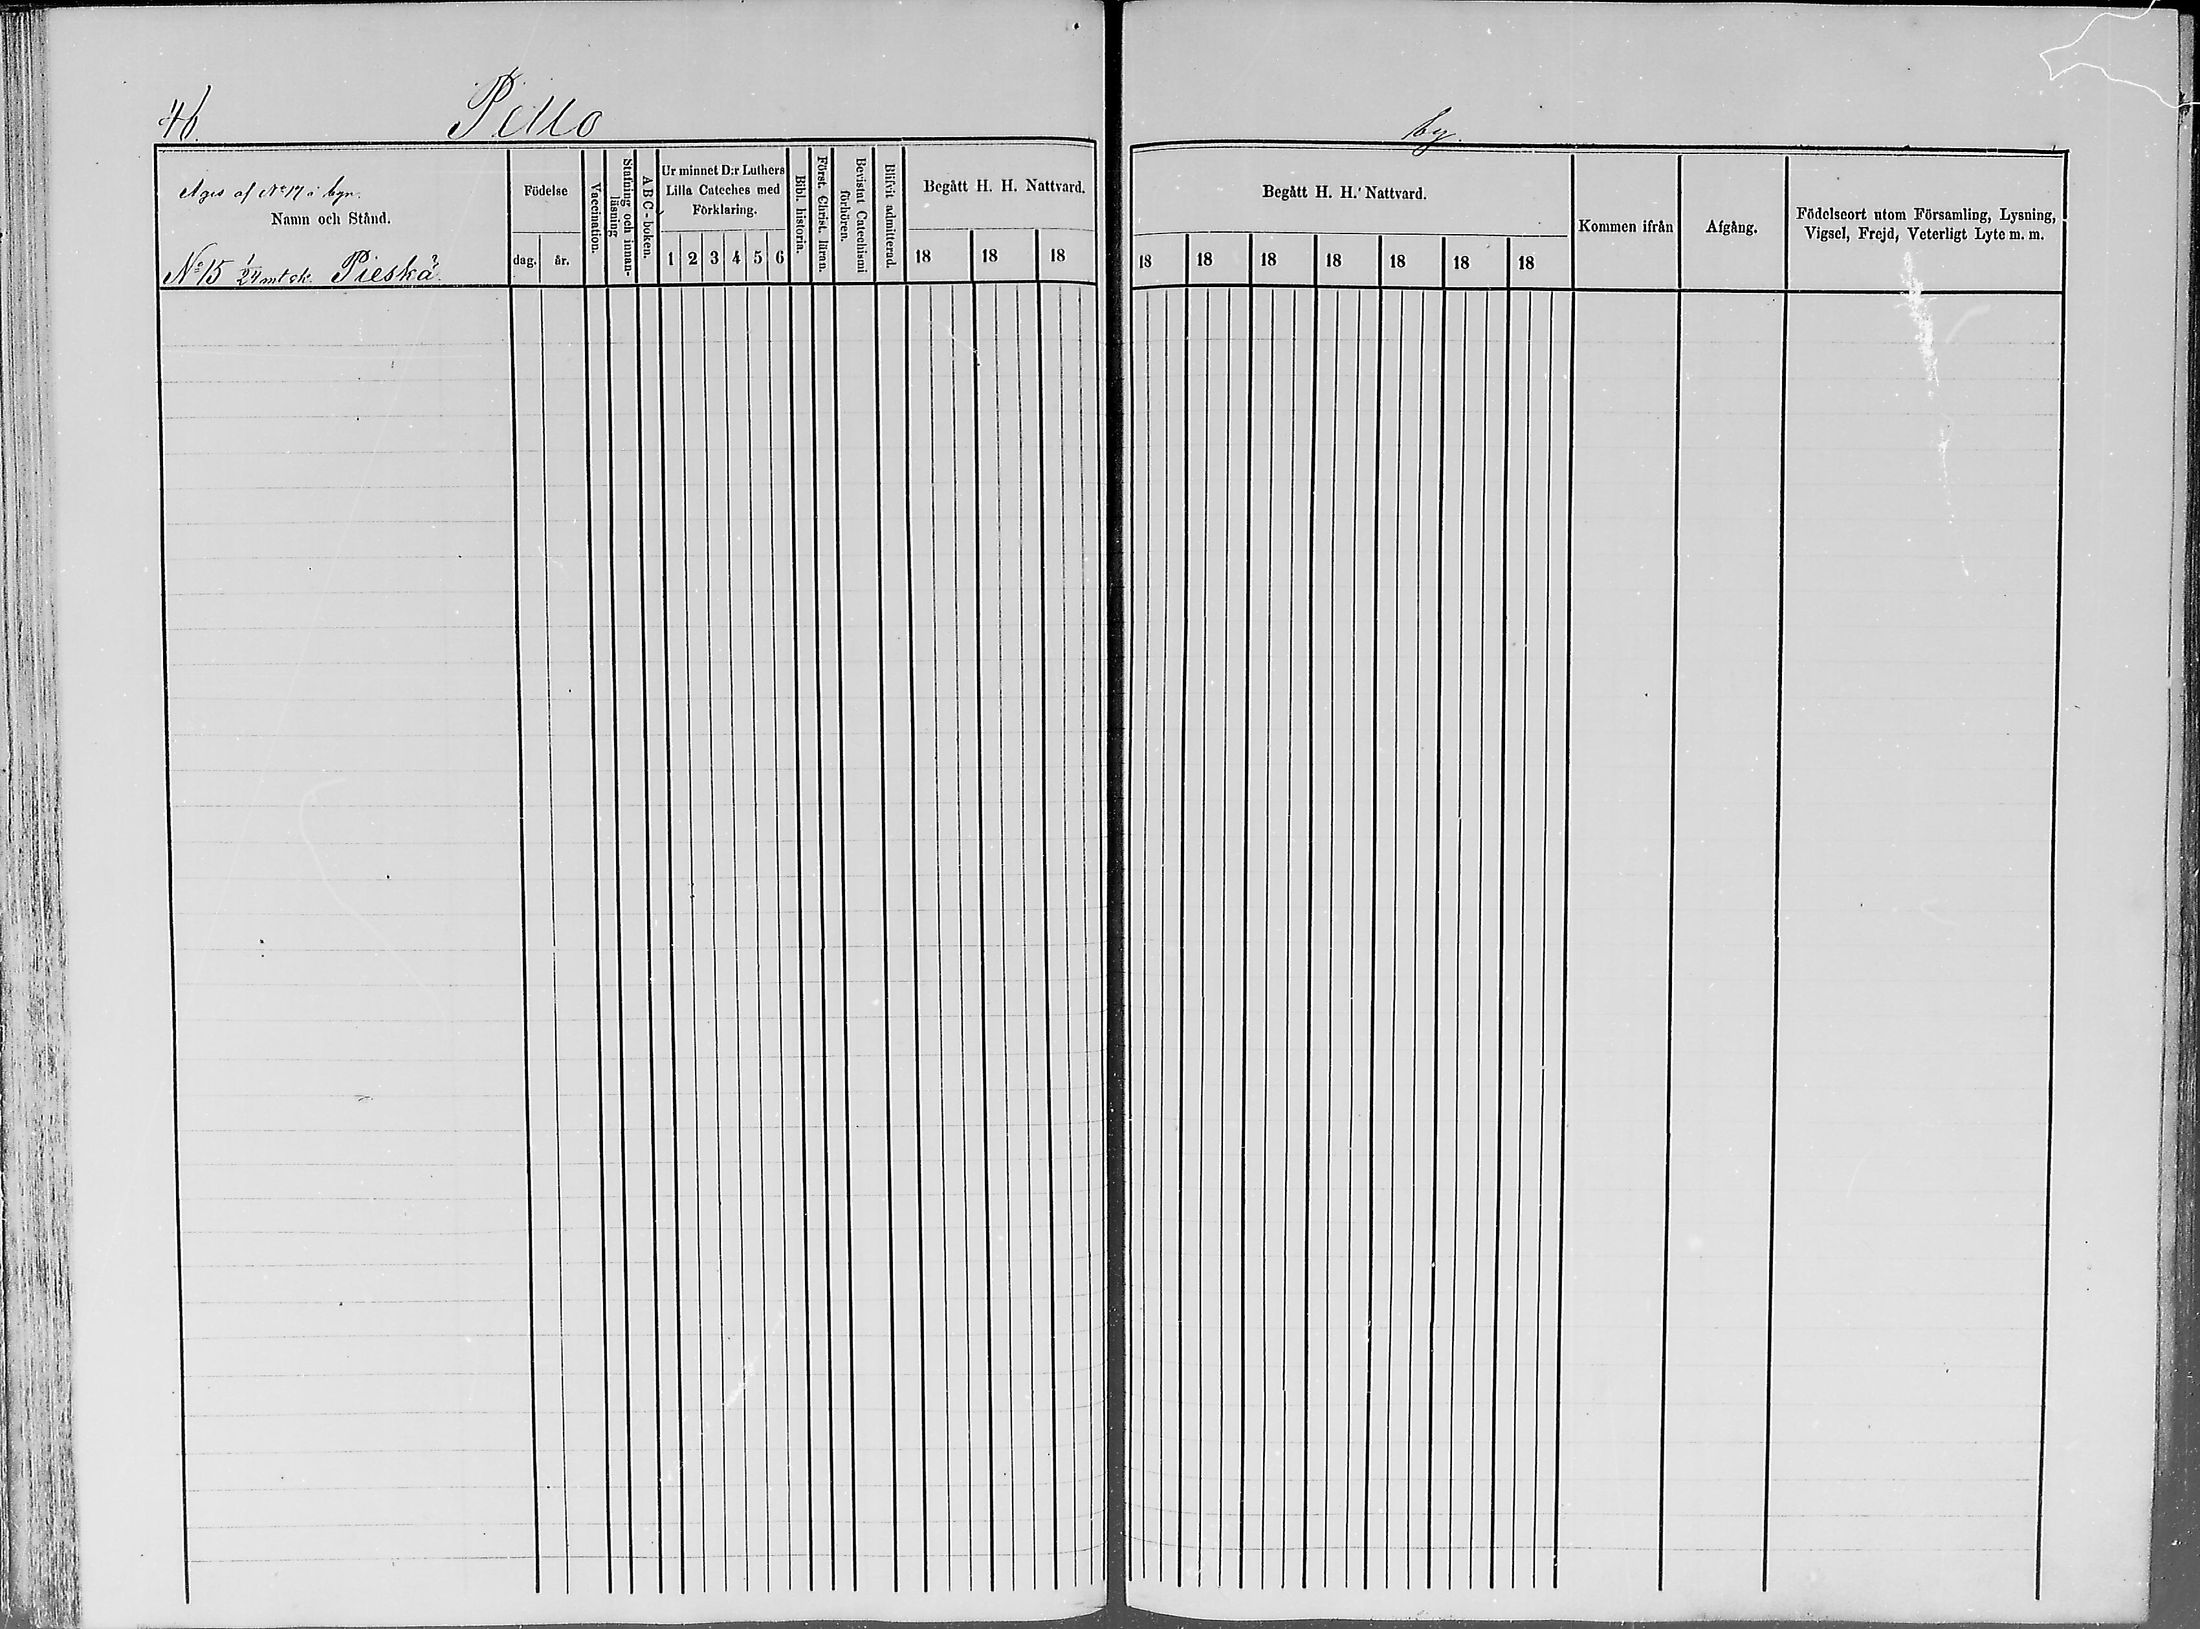 46.
Pello
by.
Ages af No 17 i byn.
Namn och Stånd.
No 15 1/24 mtl sk. Pieskä.
Födelse
dag. år.
Vaccination.
Stafning och innan-
läsning
A B C-boken.
Ur minnet D:r Luthers
Lilla Cateches med
Förklaring.
1 2 3 4 5 6
Bibl. historia.
Först. Christ. läran.
Bevistat Catechismi
förhören.
Blifvit admitterad.
Begått H. H. Nattvard.
18 18 18
Begått H. H. Nattvard.
18 18 18 18 18 18 18
Kommen ifrån
Afgång.
Födelseort utom Församling, Lysning,
Vigsel, Frejd, Veterligt Lyte m. m.